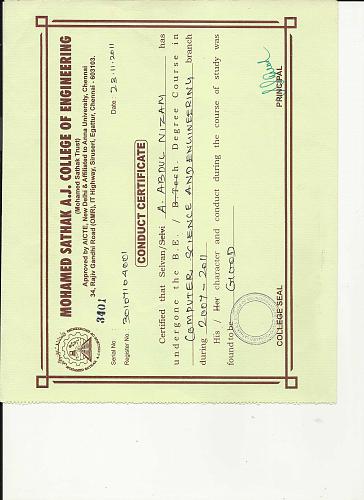 MOHAMED SATHAK A.J. COLLEGE OF ENGINEERING
(Mohamed Sathak Trust)
Approved by AICTE, New Delhi & Affiliated to Anna University, Chennai
34, Rajiv Gandhi Road (OMR), IT Highway, Siruseri, Egattur, Chennai - 603103.
Serial No : 3401
Date : 23.11.2011
Register No : 30107104001
CONDUCT CERTIFICATE
Certified that Selvan/Selvi A. ABDUL NIZAM has
undergone the B.E. / B.Tech. Degree Course in
COMPUTER SCIENCE AND ENGINEERING branch
during 2007-2011
His / Her character and conduct during the course of study was
found to be GOOD
COLLEGE SEAL
PRINCIPAL